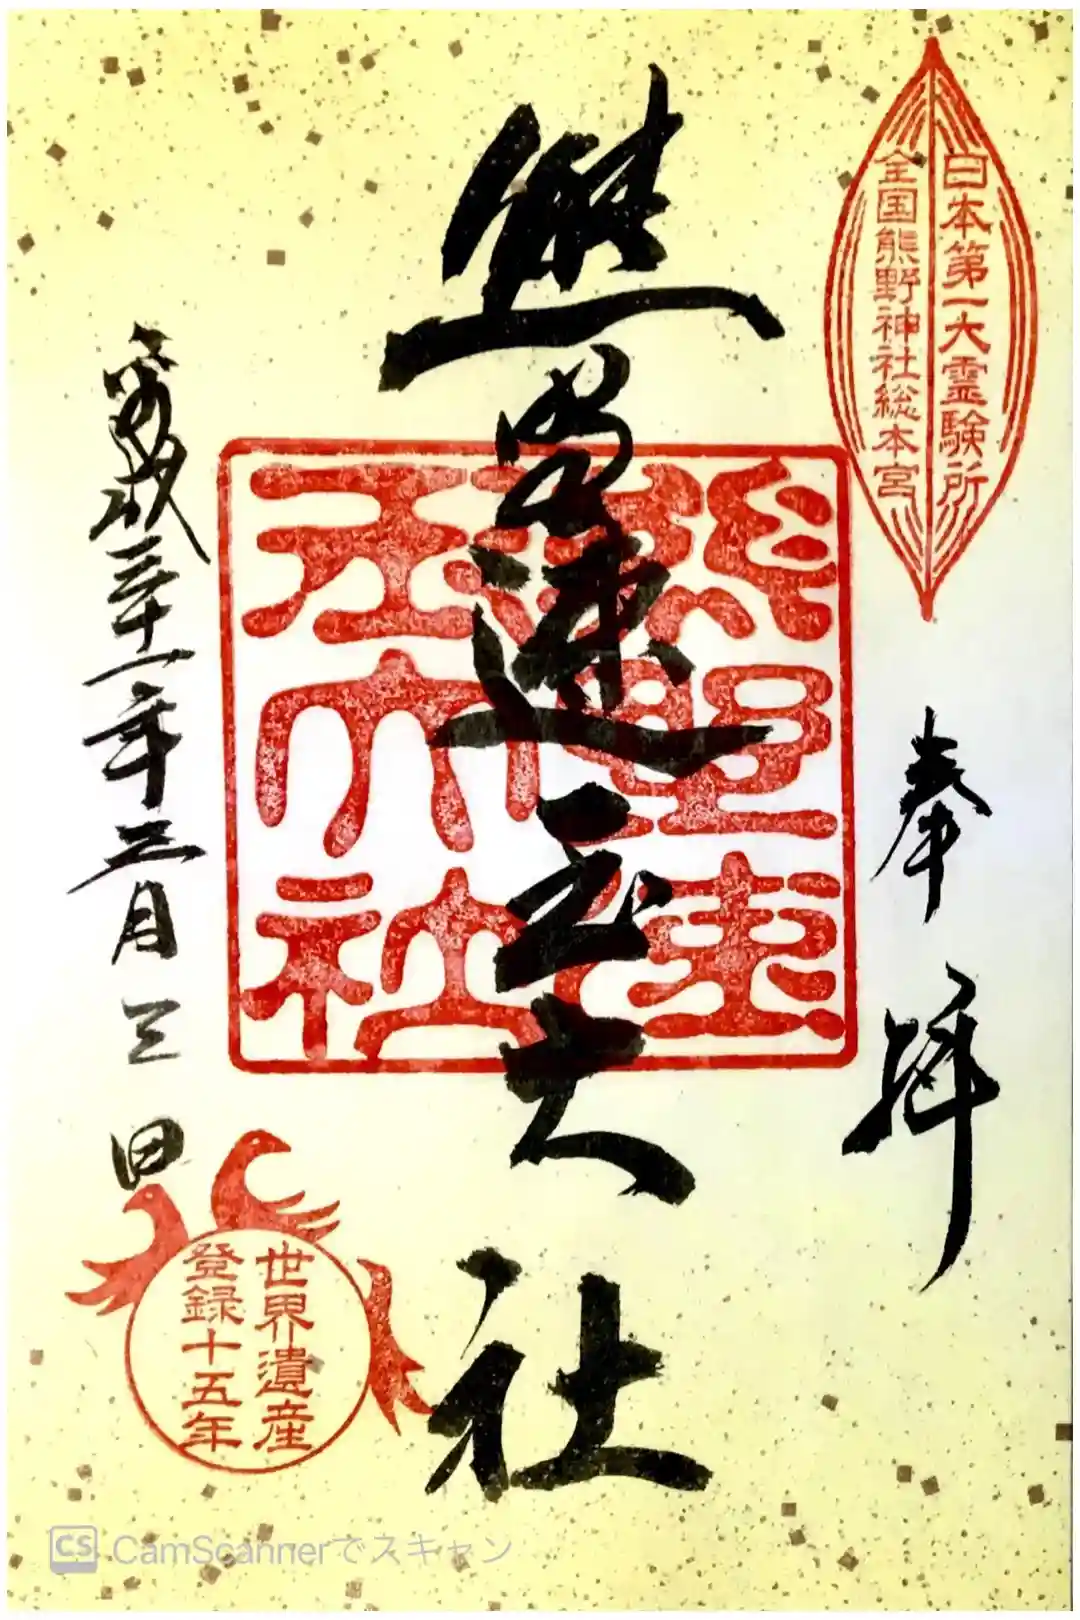 日本第一大霊験所
全国熊野神社総本宮
奉拝
熊野速玉大社
熊野速
玉大社
平成三十一年三月三日
世界遺産
登録十五年
CS CamScannerでスキャン